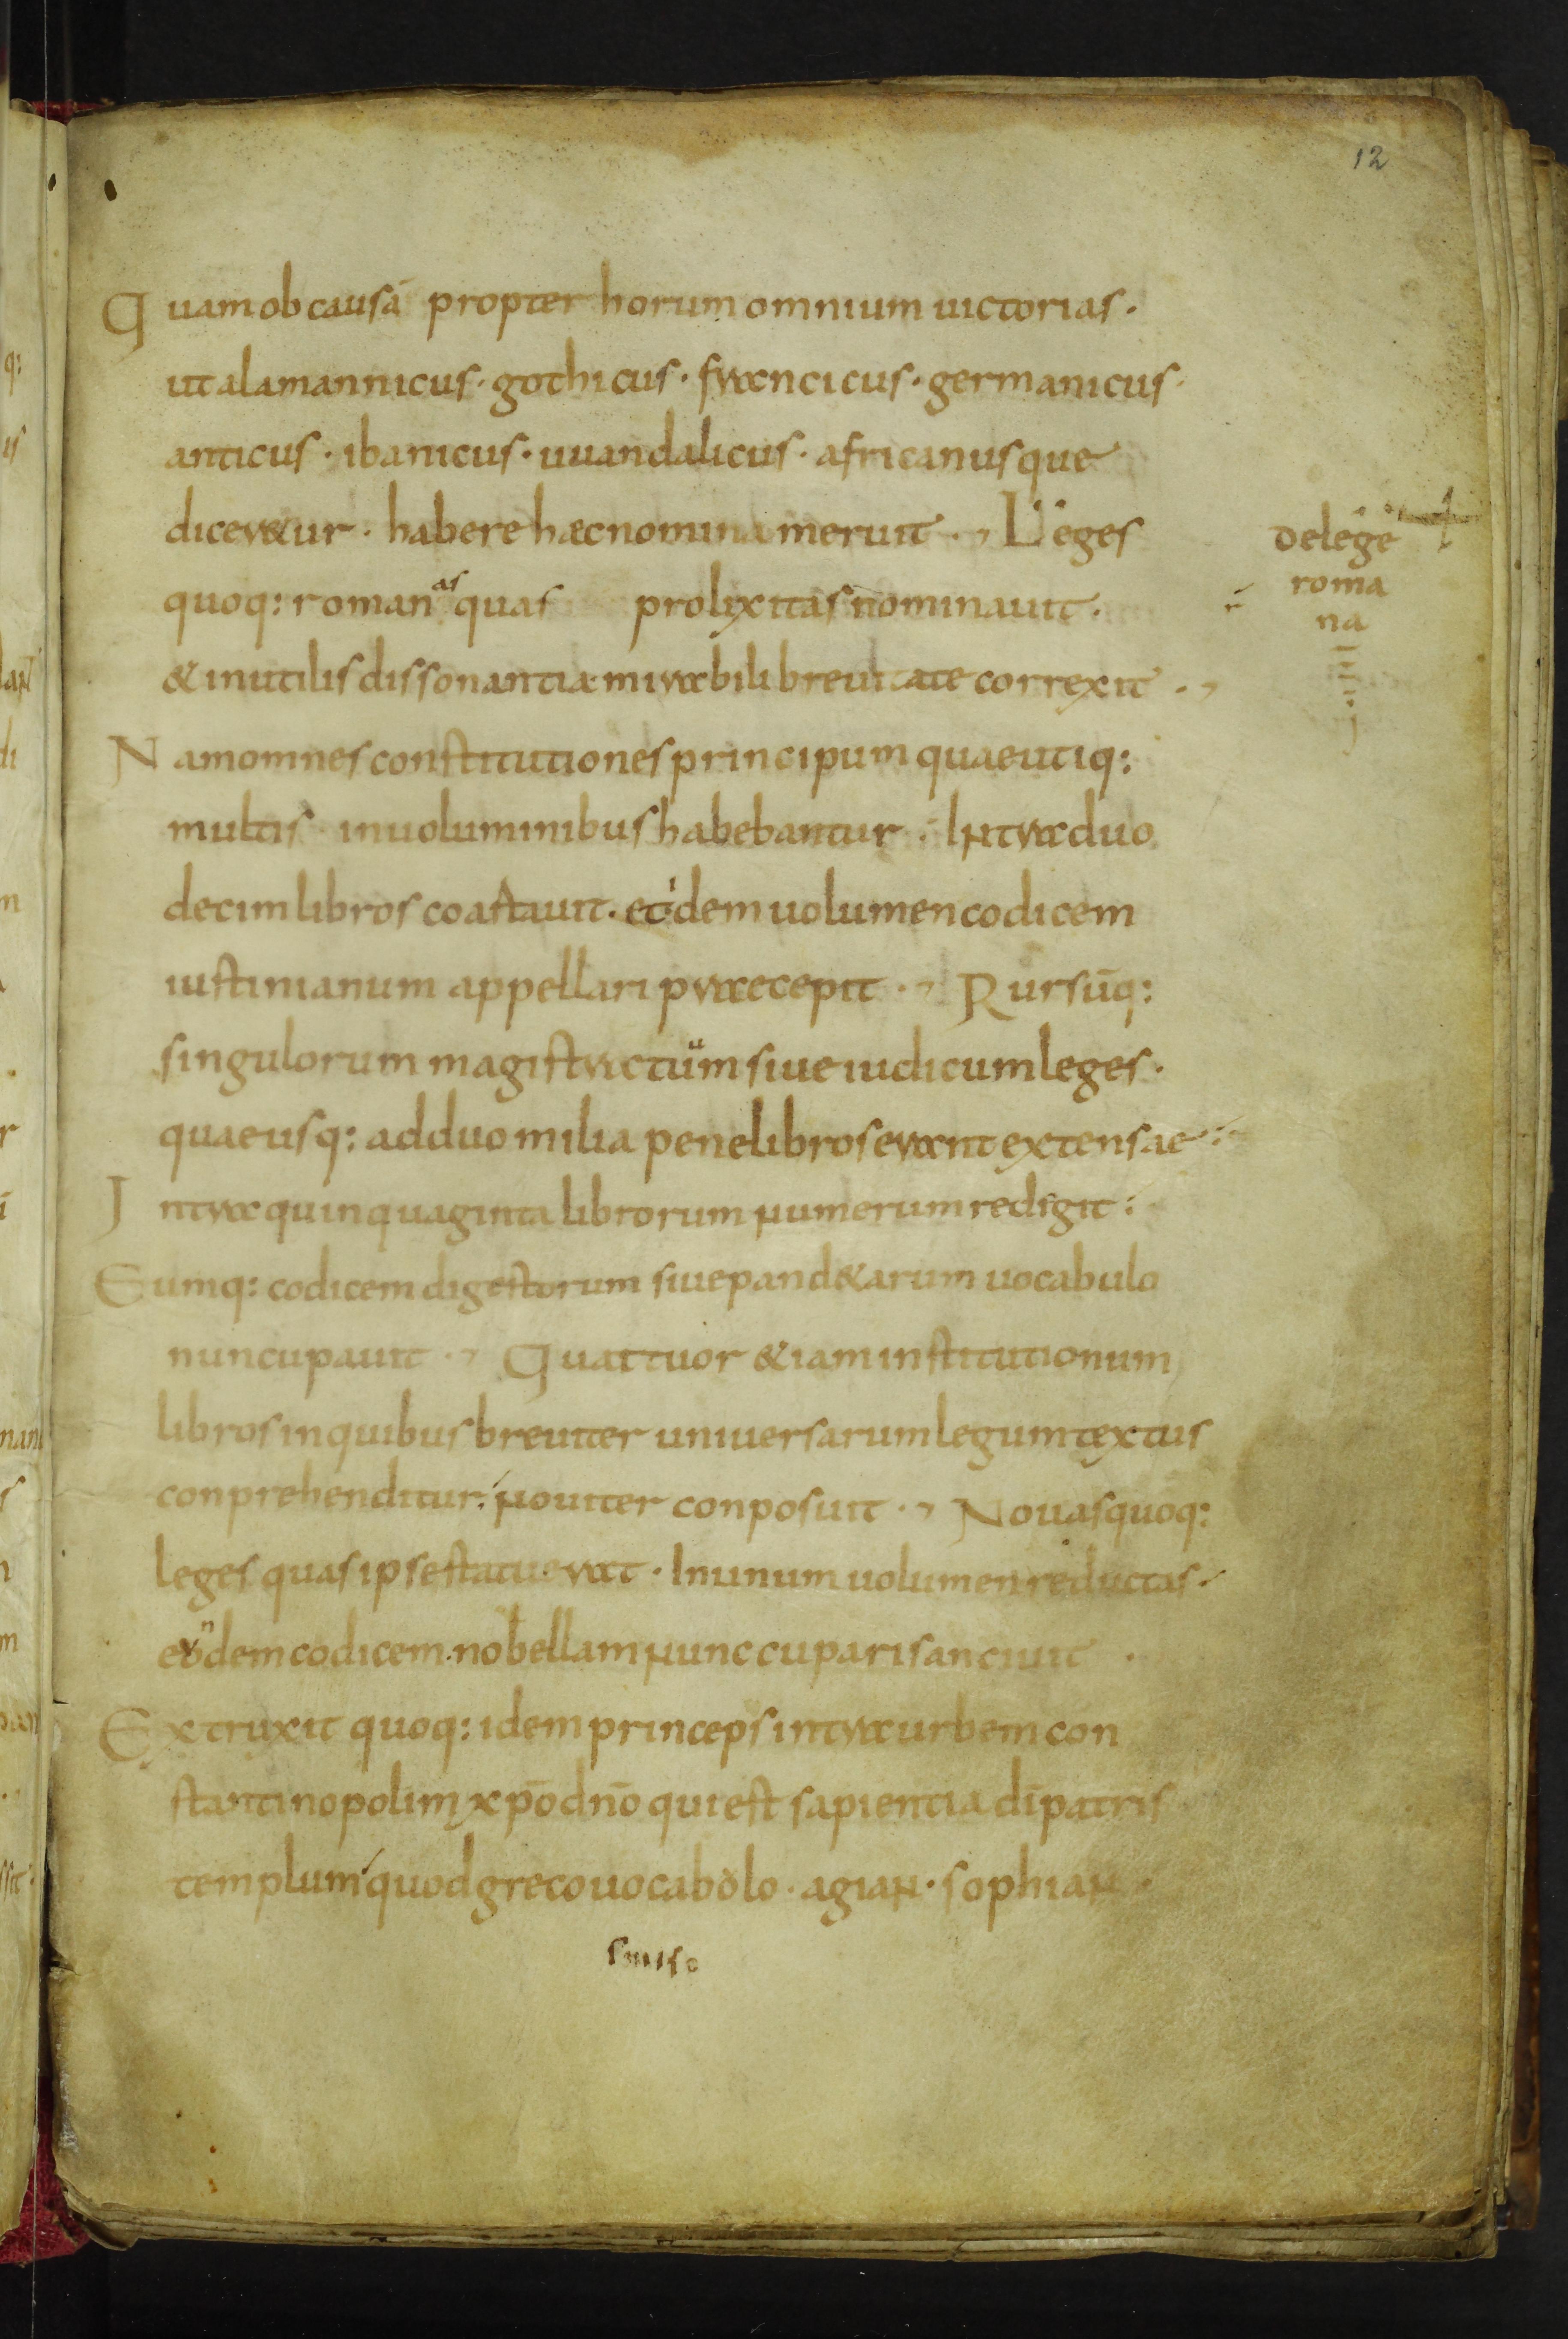 12
Quam ob causā propter horum omnium uictorias·
ut alamannicus· gothicus· francicus· germanicus·
anticus· ibanicus· uuandalicus· africanusque
diceretur· habere haec nomina meruit·, Leges
quoq: romanas quas prolixitas nominauit·
& inutilis dissonantia mirabili breuitate correxit·,
Nam omnes constitutiones principum quae utiq:
multis in uoluminibus habebantur· Intra duo
decim libros coastauit· et idem uolumen codicem
iustinianum appellari praecepit·, Rursūq:
singulorum magistratuum siue iudicum leges·
quae usq: ad duo milia pene libros erant extensae·
Intra quinquaginta librorum numerum redigit:
Eumq: codicem digestorum siue pand&arum uocabulo
nuncupauit·, Quattuor &iam institutionum
libros in quibus breuiter uniuersarum legum textus
conprehenditur; nouiter conposuit·, Nouas quoq:
leges quas ipse statuerat· In unum uolumen reductas·
eundem codicem· nobellam nunccupari sanciuit·
Extruxit quoq: idem princeps intra urbem con
stantinopolim xp̄o dn̄o qui est sapientia dī patris
templum quod greco uocabolo· agian· sophian·
De lege
roma
na